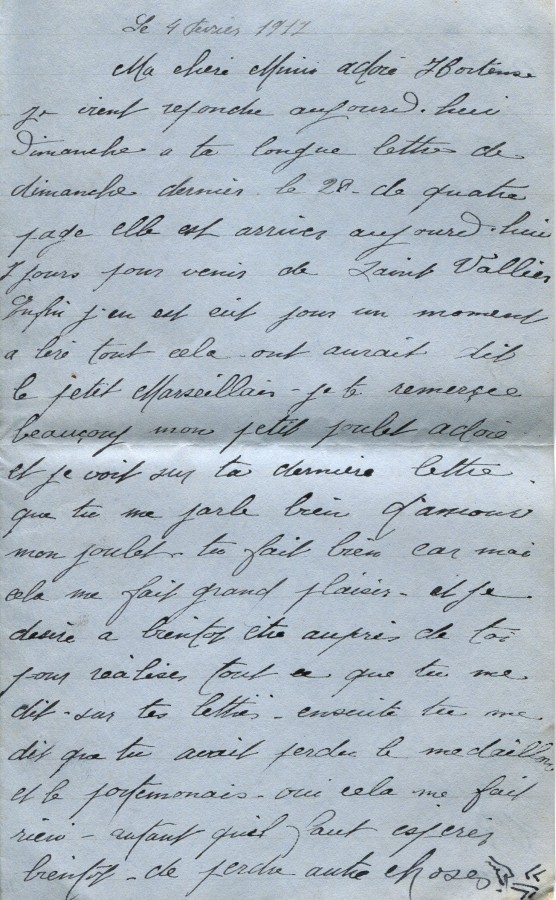 Le 4 fevrier 1917
Ma chere Mimi adoré Hortense
je vient repondre aujourd'hui
Dimanche a ta longue lettre de
dimanche dernier le 28 - de quatre
page elle est arrivée aujourd'hui
7 jours pour venir de Saint Vallier
Enfin j'en est eut pour un moment
a lire tout cela - ont aurait dit
le petit Marseillais - je te remerçie
beaucoup mon petit poulet adoré
et je voit sur ta derniere lettre
que tu me parle bien d'amour
mon poulet - tu fait bien car moi
cela me fait grand plaisir - et je
desire a bientot être auprès de toi
pour réaliser tout ce que tu me
dit - sur tes lettres - ensuite tu me
dit que tu avait perdu le medaillon
et le portemonais - oui cela me fait
rien - autant qu'il faut esperer
bientot - de perdre autre choses